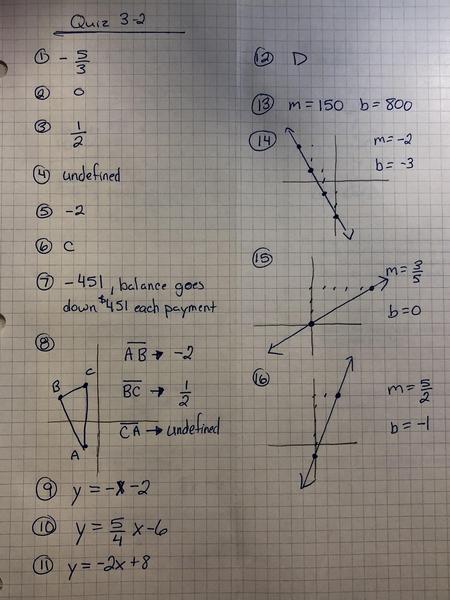 Quiz 3-2
① - 5/3
② 0
③ 1/2
④ undefined
⑤ -2
⑥ C
⑦ -451, balance goes
down $451 each payment
⑧
AB → -2
B C
BC → 1/2
CA → undefined
A
⑨ y = -x - 2
⑩ y = 5/4 x - 6
⑪ y = -2x + 8
⑫ D
⑬ m = 150 b = 800
⑭ m = -2
b = -3
⑮ m = 3/5
b = 0
⑯ m = 5/2
b = -1